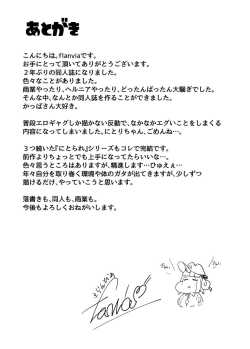 あとがき
こんにちは、flanviaです。
お手にとって頂いてありがとうございます。
２年ぶりの同人誌になりました。
色々なことがありました。
商業やったり、ヘルニアやったり、どったんばったん大騒ぎでした。
そんな中、なんとか同人誌を作ることができました。
かっぱさん大好き。
普段エロギャグしか描かない反動で、なかなかエグいことをしまくる
内容になってしまいました、にとりちゃん、ごめんね…。
３つ続いた『にとられ』シリーズもコレで完結です。
前作よりちょっとでも上手になってたらいいな…。
色々思うところはありますが、精進します…ひゅえぇ…
年々自分を取り巻く環境や体のガタが出てきますが、少しずつ
描けるだけ、やっていこうと思います。
落書きも、同人も、商業も。
今後もよろしくおねがいします。